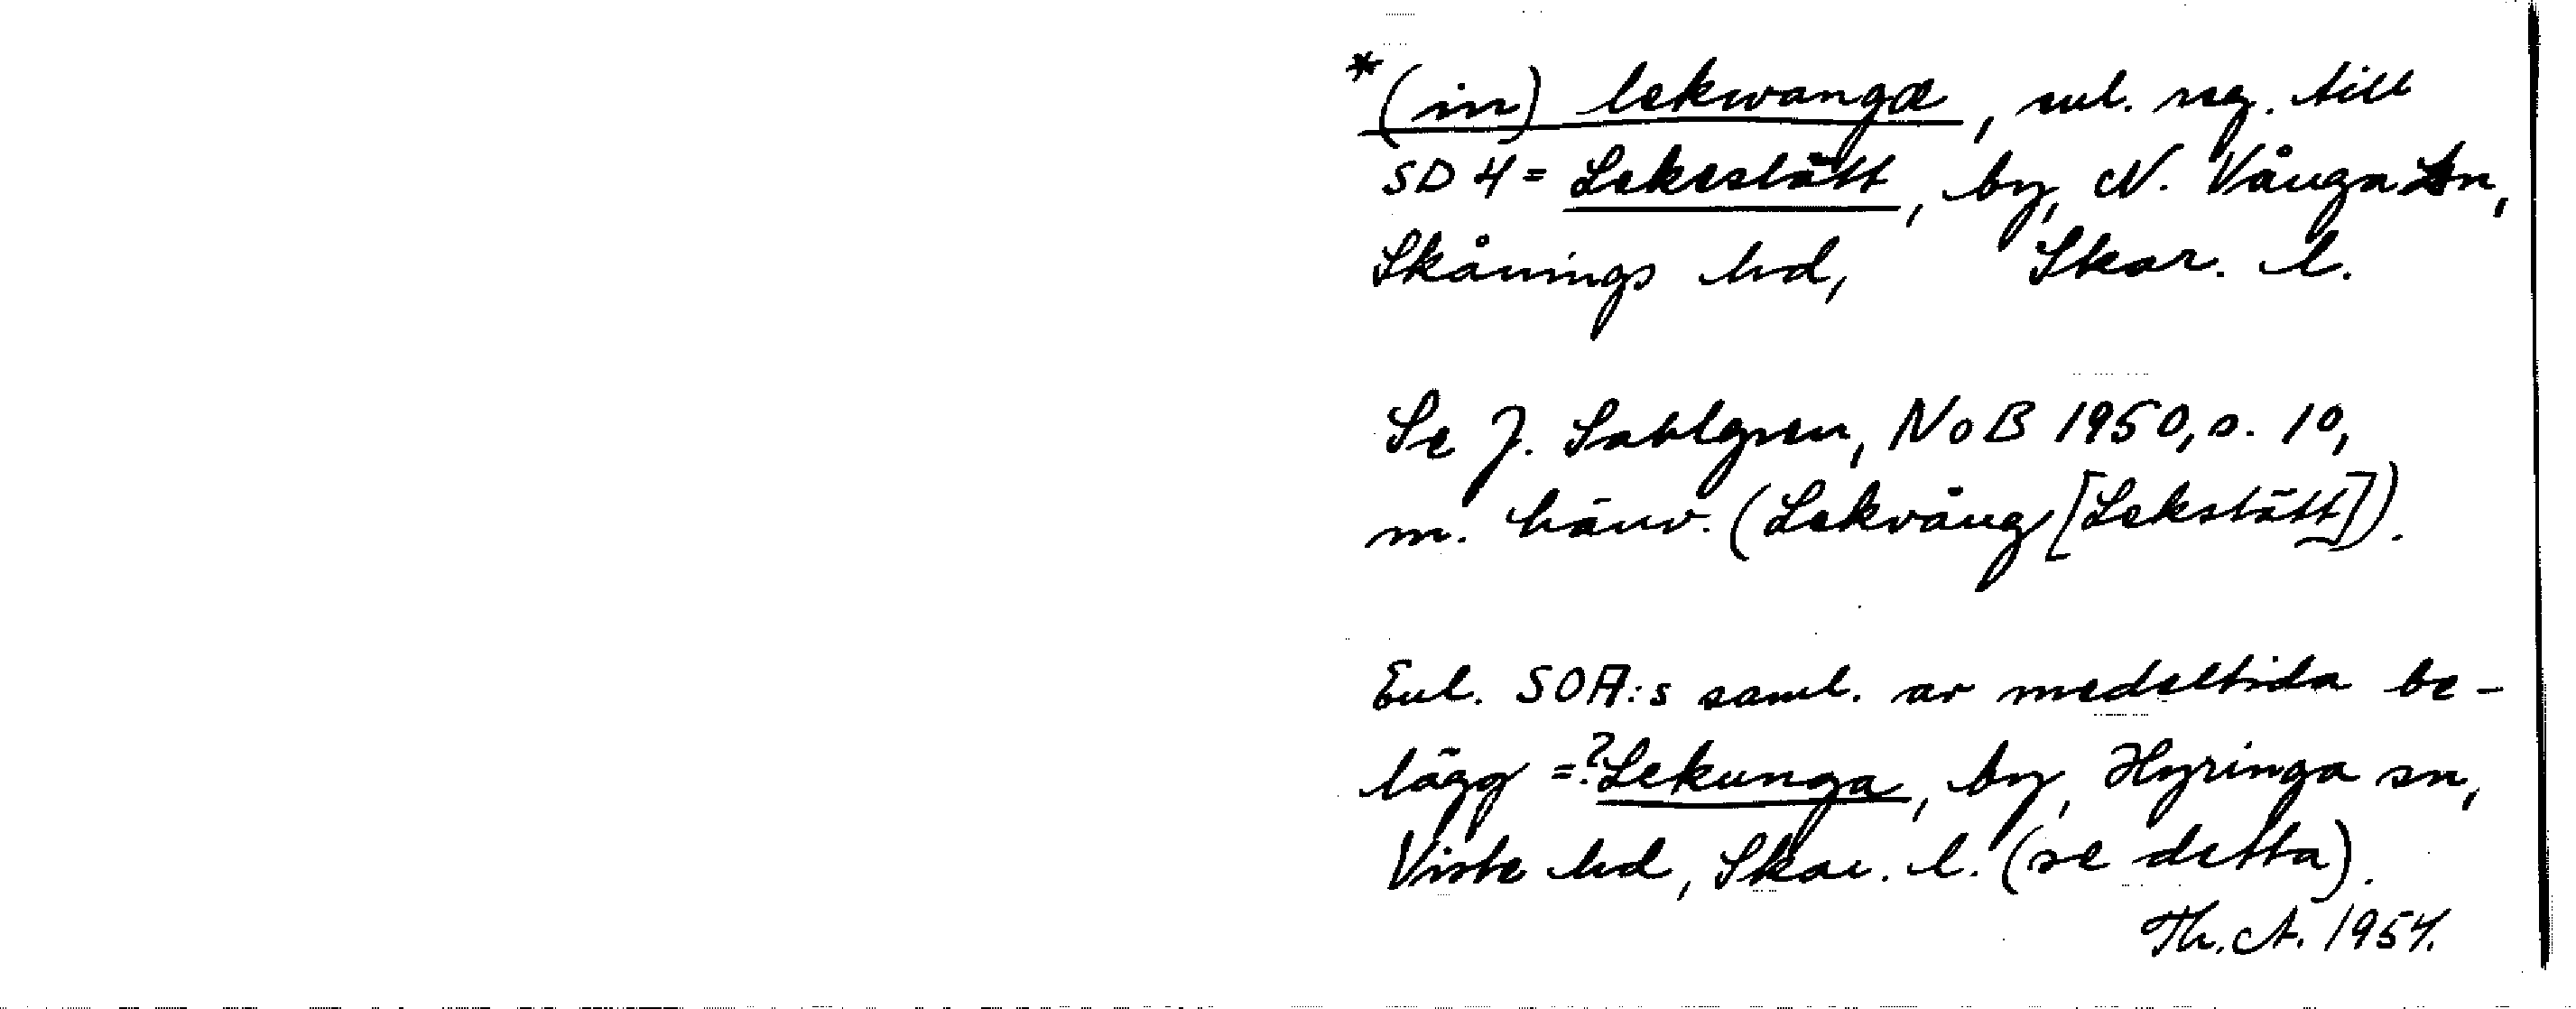 *(in) lekwangæ, enl. reg. till
SD 4 = Lekeslätt, by, N. Vånga sn,
Skånings hd, Skar. l.
Se J. Sahlgren, NoB 1950, s. 10,
m. hänv. (Lekvång [Lekslätt]).
Enl. SOA:s saml. av medeltida be-
lägg =? Lekunga, by, Hyringa sn,
Viste hd, Skar. l. (se detta).
Th. A. 1954.